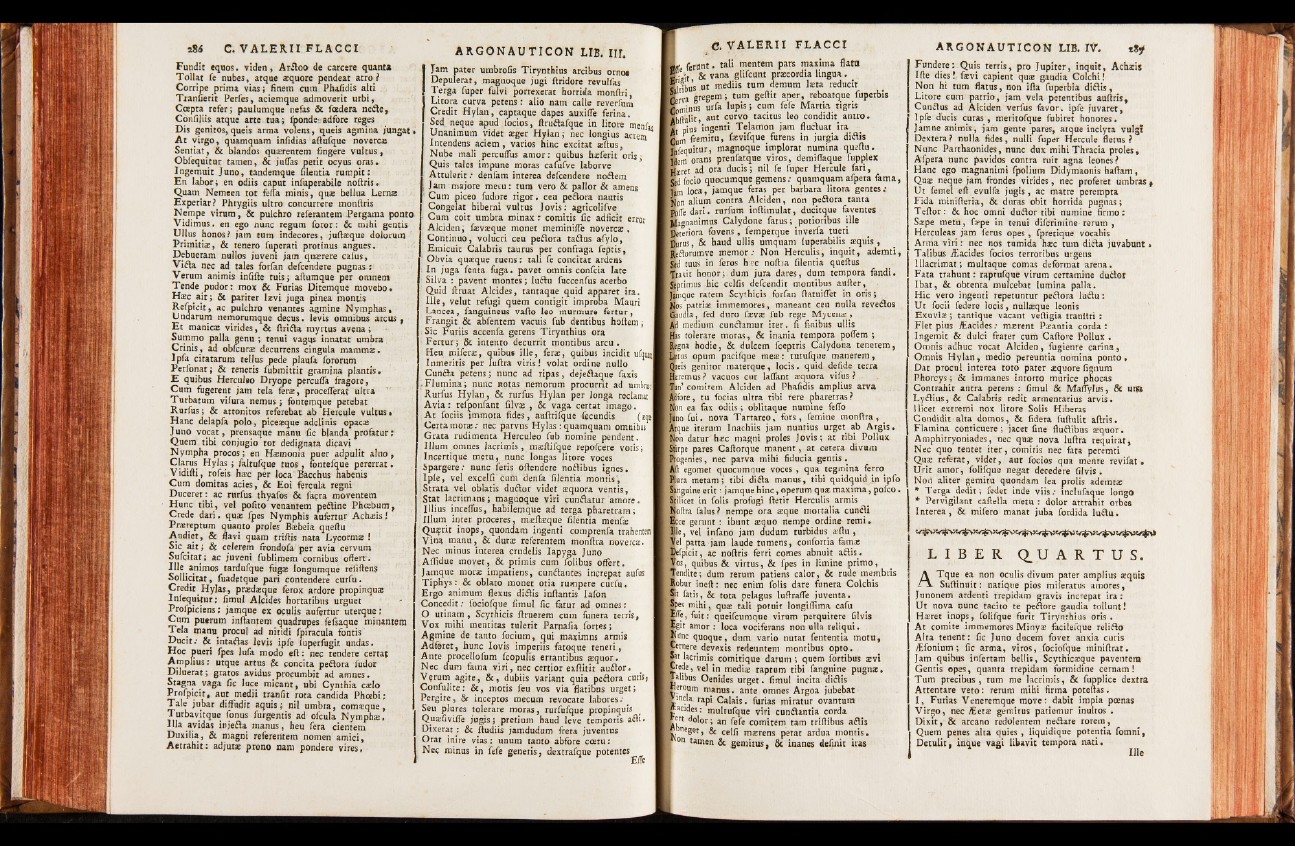 286 C. VALERII FLACCI
Fundit equos. viden, Arctoo de carcere quanta
Tollat se nubes, atque æquore pendeat atro?
Corripe prima vias; finem cum Phasidis alti
Transierit Perses, aciemque admoverit urbi,
Cœpta refer; paulumque nefas & fœdera necte,
Consiliis atque arte tua; sponde adfore reges
Dis genitos, queis arma volens, queis agmina jungat.
At virgo, quamquam insidias astusque novercæ
Sentiat, & blandos quærentem fingere vultus,
Obsequitur tamen, & jussas petit ocyus oras.
Ingemuit Juno, tandemque silentia rumpit:
En labor; en odiis caput insuperabile nostris.
Quam Nemeen tot fessa minis, quæ bellua Lernæ
Experiar? Phrygiis ultro concurrere monstris
Nempe virum, & pulchro referantem Pergama ponto
Vidimus. en ego nunc regum soror: & mihi gentis
Ullus honos? jam tum indecores, justæque dolorum
Primitiæ, & tenero superati protinus angues.
Debueram nullos juveni jam quærere casus,
Victa nec ad tales forsan descendere pugnas:
Verum animis insiste tuis; astumque per omnem
Tende pudor: mox & Furias Ditemque movebo.
Hæc ait; & pariter lævi juga pinea montis
Respicit, ac pulchro venantes agmine Nymphas,
Undarum nemorumque decus. levis omnibus arcus,
Et manicæ virides, & stricta myrtus avena;
Summo palla genu; tenui vagus innatat umbra
Crinis, ad obscuræ decurrens cingula mammæ.
Ipsa citatarum tellus pede plausa sororum
Personat; & teneris submittit gramina plantis.
E quibus Herculeo Dryope percussa fragore,
Cum fugerent jam tela feræ, processerat ultra
Turbatum visura nemus; fontemque petebat
Rursus; & attonitos referebat ab Hercule vultus.
Hanc delapsa polo, piceæque adclinis opacæ
Juno vocat, prensaque manu sic blanda profatur:
Quem tibi conjugio tot dedignata dicavi
Nympha procos; en Hæmonia puer adpulit alno,
Clarus Hylas; saltusque tuos, fontesque pererrat.
Vidisti, roseis hæc per loca Bacchus habenis
Cum domitas acies, & Eoi fercula regni
Duceret: ac rursus thyasos & sacra moventem
Hunc tibi, vel posito venantem pectine Phœbum,
Crede dari. quæ spes Nymphis aufertur Achæis!
Præreptum quanto proles Bæbeia questu
Audiet, & flavi quam tristis nata Lycormæ!
Sic ait; & celerem frondosa per avia cervum
Suscitat; ac juveni sublimem cornibus offert.
Ille animos tardusque fugæ longumque resistens
Sollicitat, suadetque pari contendere cursu.
Credit Hylas, prædæque ferox ardore propinquæ
Insequitur; simul Alcides hortatibus urguet
Prospiciens: jamque ex oculis aufertur uterque:
Cum puerum instantem quadrupes fessaque minantem
Tela manu procul ad nitidi spiracula fontis
Ducit; & intactas levis ipse superfugit undas.
Hoc pueri spes lusa modo est: nec tendere certat
Amplius: utque artus & concita pectora sudor
Diluerat; gratos avidus procumbit ad amnes.
Stagna vaga sic luce micant, ubi Cynthia cælo
Prospicit, aut medii transit rota candida Phœbi:
Tale jubar diffudit aquis; nil umbra, comæque,
Turbavitque sonus surgentis ad oscula Nymphæ.
Illa avidas injecta manus, heu sera cientem
Auxilia, & magni referentem nomen amici,
Detrahit: adjutæ prono nam pondere vires.
ARGONAUTICON LIB. III.
Jam pater umbrosis Tirynthius arcibus ornos
Depulerat, magnoque jugi stridore revulsas
Terga super fulvi porrexerat horrida monstri,
Litora curva petens: alio nam calle reversum
Credit Hylan, captaque dapes auxisse ferina.
Sed neque apud socios, structasque in litore mensas
Unanimum videt æger Hylan; nec longius acrem
Intendens aciem, varios hinc excitat æstus,
Nube mali percussus amor: quibus hæserit oris;
Quis tales impune moras casusve laborve
Attulerit: densam interea descendere noctem
Jam majore metu: tum vero & pallor & amens
Cum piceo sudore rigor. ceu pectora nautis
Congelat hiberni vultus Jovis: agricolisve
Cum coit umbra minax: comitis sic adficit error
Alciden, sævæque monet meminisse novercæ.
Continuo, volucri ceu pectora tactus asylo,
Emicuit Calabris taurus per confraga septis,
Obvia quæque ruens: tali se concitat ardens
In juga senta fuga. pavet omnis conscia late
Silva: pavent montes; luctu succensus acerbo
Quid struat Alcides, tantaque quid apparet ira.
Ille, velut refugi quem contigit improba Mauri
Lancea, sanguineus vasto leo murmure fertur,
Frangit & absentem vacuis sub dentibus hostem;
Sic Furiis accensa gerens Tirynthius ora
Fertur; & intento decurrit montibus arcu.
Heu miseræ, quibus ille, feræ, quibus incidit usquam
Inmeritis per lustra viris! volat ordine nullo
Cuncta petens; nunc ad ripas, dejectaque saxis
Flumina; nunc notas nemorum procurrit ad umbras
Rursus Hylan, & rursus Hylan per longa reclamat
Avia: responsant silvæ, & vaga certat imago.
At sociis immota fides, austrisque secundis
Certa moræ: nec parvus Hylas: quamquam omnibus
Grata rudimenta Herculeo sub nomine pendent.
Illum omnes lacrimis, mæstisque reposcere votis;
Incertique metu, nunc longas litore voces
Spargere: nunc seris ostendere noctibus ignes.
Ipse, vel excelsi cum densa silentia montis,
Strata vel oblatis ductor videt æquora ventis,
Stat lacrimans; magnoque viri cunctatur amore.
Illius incessus, habilemque ad terga pharetram;
Illum inter proceres, mæstæque silentia mensæ
Quærit inops, quondam ingenti comprensa trahentem
Vina manu, & duræ referentem monstra novercæ.
Nec minus interea crudelis Iapyga Juno
Affidue movet, & primis cum solibus offert.
Jamque moræ impatiens, cunctantes increpat ausus
Tiphys: & oblato monet otia rumpere cursu.
Ergo animum flexus dictis instantis Iason
Concedit: sociosque simul sic fatur ad omnes:
O utinam, Scythicis struerem cum funera terris,
Vox mihi mentitas tulerit Parnasia sortes;
Agmine de tanto socium, qui maximus armis
Adforet, hunc Jovis imperiis fatoque teneri,
Ante procellosum scopulis errantibus æquor.
Nec dum fama viri, nec certior exstitit auctor.
Verum agite, &, dubiis variant quia pectora curis,
Consulite: &, motis seu vos via flatibus urget;
Pergite, & inceptos mecum revocate labores:
Seu plures tolerare moras, rursusque propinquis
Quæsivisse jugis; pretium haud leve temporis acti.
Dixerat: & studiis jamdudum freta juventus
Orat inire vias: unum tanto abfore cœtu:
Nec minus in sese generis, dextrasque potentes
Esse
C. VALERII FLACCI
Esse ferunt. tali mentem pars maxima flatu
Erigit, & vana gliscunt præcordia lingua.
Saltibus ut mediis tum demum læta reducit
Cerva gregem; tum gestit aper, reboatque superbis
Cominus ursa lupis; cum sese Martia tigris
Abstulit, aut curvo tacitus leo condidit antro.
At pius ingenti Telamon jam fluctuat ira
Cum fremitu, sævisque furens in jurgia dictis
Insequitur, magnoque implorat numina questu.
Idem orans prensatque viros, demissaque supplex
Hæret ad ora ducis; nil se super Hercule fari,
Sed socio quocumque gemens: quamquam aspera fama,
Jam loca, jamque feras per barbara litora gentes:
Non alium contra Alciden, non pectora tanta
Posse dari. rursum instimulat, ducitque faventes
Magnanimus Calydone satus; potioribus ille
Deteriora fovens, semperque inversa tueri
Durus, & haud ullis umquam superabilis æquis,
Rectorumve memor: Non Herculis, inquit, ademti,
Sed tuus in seros hæc nostra silentia questus
Traxit honor; dum jura dares, dum tempora fandi.
Septimus hic celsis descendit montibus auster,
Jamque ratem Scythicis forsan statuisset in oris;
Nos patriæ immemores, maneant ceu nulla revectos
Gaudia, sed duro sævæ sub rege Mycenæ,
Ad medium cunctamur iter. si finibus ullis
Has tolerare moras, & inania tempora possem;
Regna hodie, & dulcem sceptris Calydona tenerem,
Lætus opum pacisque meæ: tutusque manerem,
Queis genitor materque, locis. quid deside terra
Hæremus? vacuos cur lassant æquora visus?
Tun' comitem Alciden ad Phasidis amplius arva
Adfore, tu socias ultra tibi rere pharetras?
Non ea fax odiis; oblitaque numine fesso
Juno sui. nova Tartareo, fors, semine monstra,
Atque iterum Inachiis jam nuntius urget ab Argis.
Non datur hæc magni proles Jovis; at tibi Pollux
Stirpe pares Castorque manent, at cetera divum
Progenies, nec parva mihi fiducia gentis.
Ast egomet quocumque voces, qua tegmina ferro
Plura metam; tibi dicta manus, tibi quidquid in ipso
Sanguine erit: jamque hinc, operum quæ maxima, posco.
Scilicet in solis profugi stetit Herculis armis
Nostra salus? nempe ora æque mortalia cuncti
Ecce gerunt: ibunt æquo nempe ordine remi.
Ille, vel insano jam dudum turbidus æstu,
Vel parta jam laude tumens, consortia famæ
Despicit, ac nostris ferri comes abnuit actis.
Vos, quibus & virtus, & spes in limine primo,
Tendite; dum rerum patiens calor, & rude membris
Robur inest: nec enim solis dare funera Colchis
Sit satis, & tota pelagus lustrasse juventa.
Spes mihi, quæ tali potuit longissima casu
Esse, fuit: queiscumque virum perquirere silvis
Egit amor: loca vociferans non ulla reliqui.
Nunc quoque, dum vario nutat sententia motu,
Cernere devexis redeuntem montibus opto.
Sat lacrimis comitique datum; quem sortibus ævi
Crede, vel in mediæ raptum tibi sanguine pugnæ.
Talibus Oenides urget. simul incita dictis
Heroum manus. ante omnes Argoa jubebat
Vincla rapi Calais. furias miratur ovantum
Æacides: multusque viri cunctantia corda
Fert dolor; an sese comitem tam tristibus actis
Abneget, & celsi mærens petat ardua montis.
Non tamen & gemitus, & inanes desinit iras
ARGONAUTICON LIB. IV. 287
Fundere: Quis terris, pro Jupiter, inquit, Achæis
Iste dies! sævi capient quæ gaudia Colchi!
Non hi tum flatus, non ista superbia dictis,
Litore cum patrio, jam vela petentibus austris,
Cunctus ad Alciden versus favor. ipse juvaret,
Ipse ducis curas, meritosque subiret honores.
Jamne animis, jam gente pares, atque inclyta vulgi
Dextera? nulla fides, nulli super Hercule fletus?
Nunc Parthaonides, nunc dux mihi Thracia proles,
Aspera nunc pavidos contra ruit agna leones?
Hanc ego magnanimi spolium Didymaonis hastam,
Quæ neque jam frondes virides, nec proferet umbras,
Ut semel est evulsa jugis, ac matre perempta
Fida ministeria, & duras obit horrida pugnas;
Testor: & hoc omni ductor tibi numine firmo:
Sæpe metu, sæpe in tenui discrimine rerum,
Herculeas jam serus opes, spretique vocabis
Arma viri: nec nos tumida hæc tum dicta juvabunt.
Talibus Æacides socios terroribus urgens
Illacrimat; multaque comas deformat arena.
Fata trahunt: raptusque virum certamine ductor
Ibat, & obtenta mulcebat lumina palla.
Hic vero ingenti repetuntur pectora luctu:
Ut socii sedere locis, nullæque leonis
Exuviæ; tantique vacant vestigia transtri:
Flet pius Æacides: mærent Pæantia corda:
Ingemit & dulci frater cum Castore Pollux.
Omnis adhuc vocat Alciden, fugiente carina,
Omnis Hylan, medio pereuntia nomina ponto.
Dat procul interea toto pater æquore signum
Phorcys; & immanes intorto murice phocas
Contrahit antra petens: simul & Massylus, & una
Lyctius, & Calabris redit armentarius arvis.
Ilicet extremi nox litore Solis Hiberas
Condidit alta domos, & sidera sustulit astris.
Flamina conticuere; jacet sine fluctibus æquor.
Amphitryoniades, nec quæ nova lustra requirat,
Nec quo tentet iter, comitis nec fata peremti
Quæ referat, videt, aut socios qua mente revisat.
Urit amor, solisque negat decedere silvis.
Non aliter gemitu quondam lea prolis ademtæ
* Terga dedit; sedet inde viis: inclusaque longo
* Pervigilant castella metu: dolor attrahit orbes
Interea, & misero manat juba sordida luctu.
LIBER QUARTUS.
ATque ea non oculis divum pater amplius æquis
Sustinuit: natique pios miseratus amores,
Junonem ardenti trepidam gravis increpat ira:
Ut nova nunc tacito te pectore gaudia tollunt!
Hæret inops, solisque furit Tirynthius oris.
At comite immemores Minyæ facilesque relicto
Alta tenent: sic Juno ducem fovet anxia curis
Æsonium; sic arma, viros, sociosque ministrat.
Jam quibus infestam bellis, Scythicæque paventem
Gentis opes, quanta trepidam formidine cernam!
Tum precibus, tum me lacrimis, & supplice dextra
Attentare veto: rerum mihi firma potestas.
I, Furias Veneremque move: dabit impia pœnas
Virgo, nec Æetæ gemitus patiemur inultos.
Dixit, & arcano redolentem nectare rorem,
Quem penes alta quies, liquidique potentia somni,
Detulit, inque vagi libavit tempora nati.
Ille